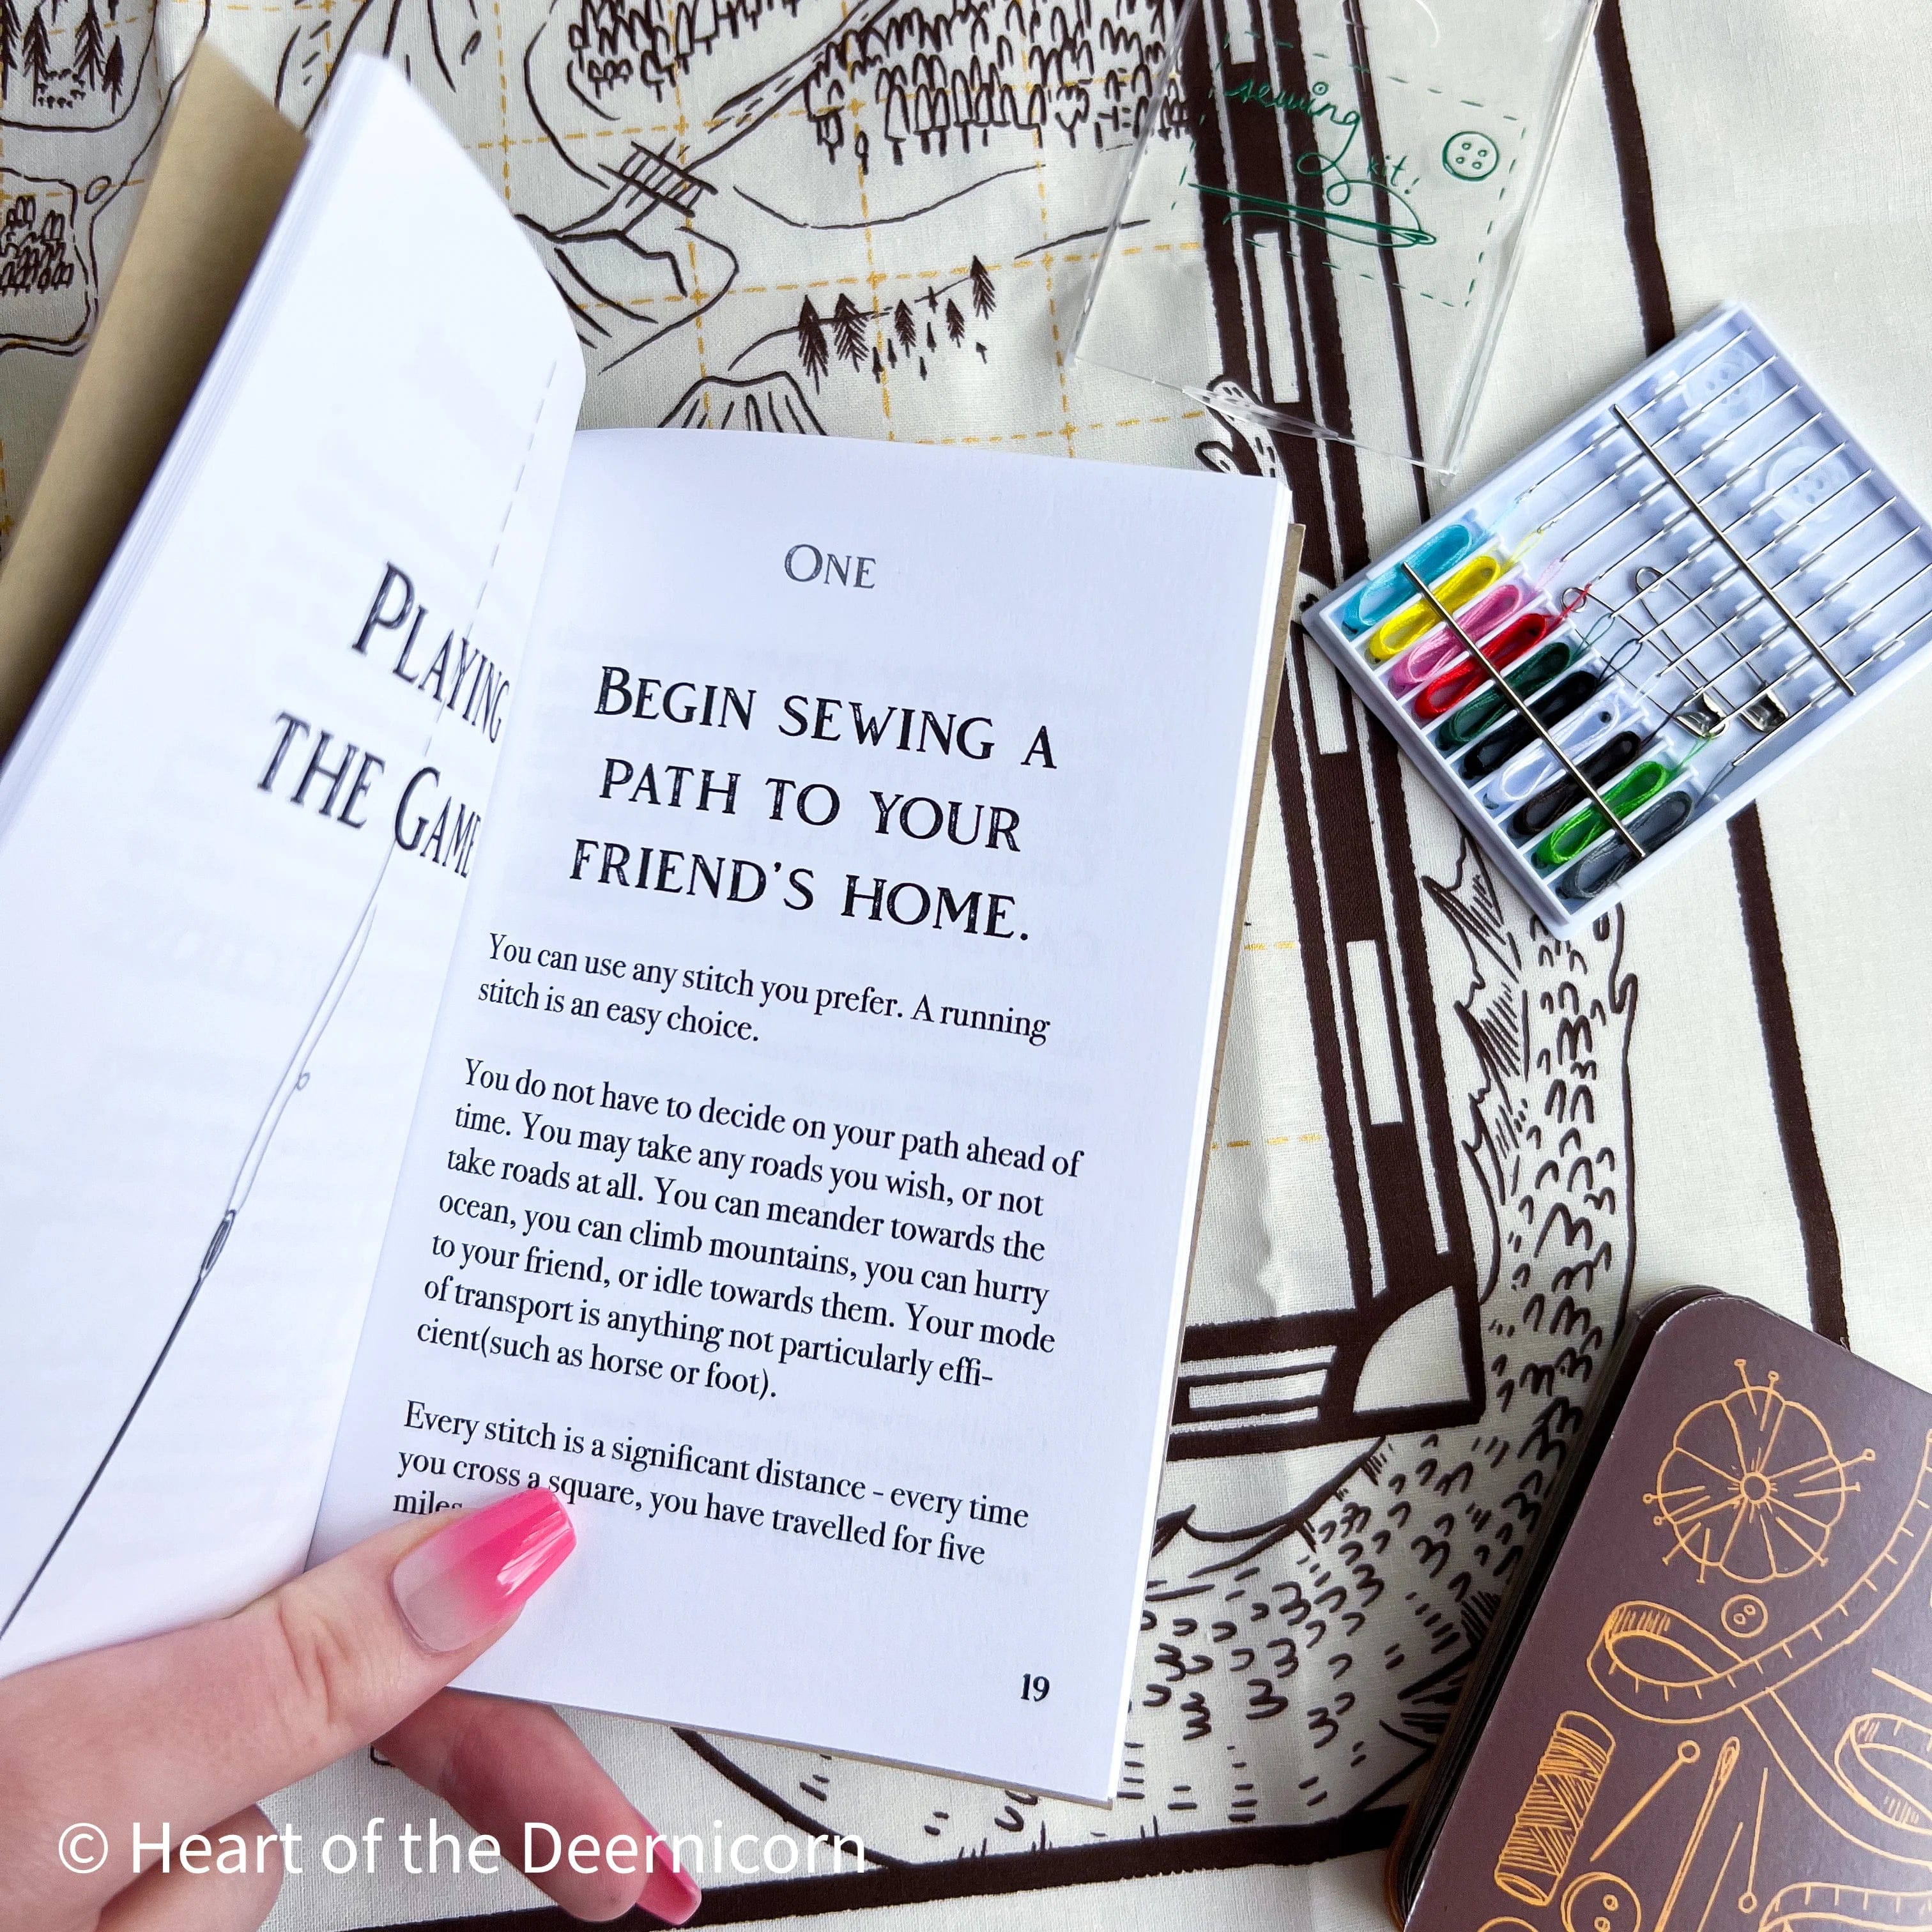 sewing
kit!
PLAYING
THE GAME
ONE
BEGIN SEWING A
PATH TO YOUR
FRIEND'S HOME.
You can use any stitch you prefer. A running
stitch is an easy choice.
You do not have to decide on your path ahead of
time. You may take any roads you wish, or not
take roads at all. You can meander towards the
ocean, you can climb mountains, you can hurry
to your friend, or idle towards them. Your mode
of transport is anything not particularly effi-
cient(such as horse or foot).
Every stitch is a significant distance - every time
you cross a square, you have travelled for five
miles
19
© Heart of the Deernicorn